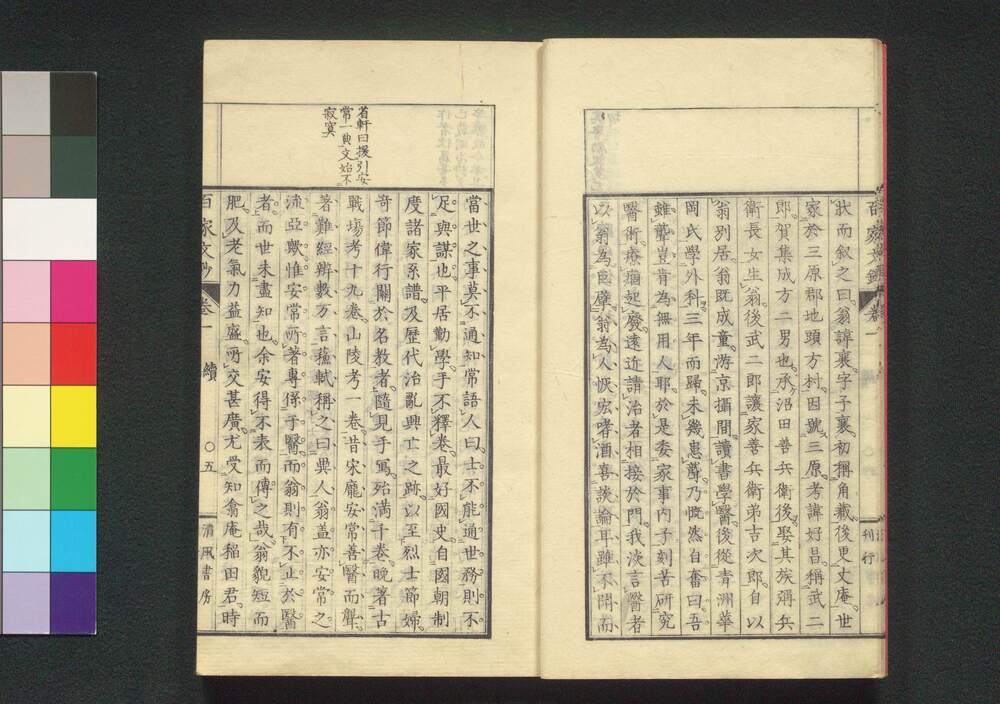 百家文鈔 卷一
刊行
狀而叙之曰翁諱襄字子襄初稱角藏後更丈庵世
家於三原郡地頭方村因號三原考諱好昌稱武二
郎賀集成方二男也承沼田善兵衛後娶其族彌兵
衛長女生翁後武二郎讓家善兵衛弟吉次郎自以
翁別居翁既成童游京攝間讀書學醫後從青洲華
岡氏學外科三年而歸未幾患聾乃慨然自奮曰吾
雖聾豈肯為無用人耶於是委家事內子刻苦研究
醫術療痼起廢遠近請治者相接於門我淡言醫者
以翁為巨擘翁為人恢宏嗜酒喜談論耳雖不聞而
省軒曰援引安
常一典文始不
寂寞
當世之事莫不通知常語人曰士不能通世務則不
足與謀也平居勤學手不釋卷最好國史自國朝制
度諸家系譜及歷代治亂興亡之跡以至烈士節婦
奇節偉行關於名教者隨見手寫殆滿千卷晚著古
戰場考十九卷山陵考一卷昔宋龐安常善醫而聾
著難經辨數万言蘓軾稱之曰異人翁蓋亦安常之
流亞歟惟安常所著專係于醫而翁則有不止於醫
者而世未盡知也余安得不表而傳之哉翁貌短而
肥及老氣力益盛所交甚廣尤受知翕庵稲田君時
百家文鈔 卷一 續 〇五 清風書房